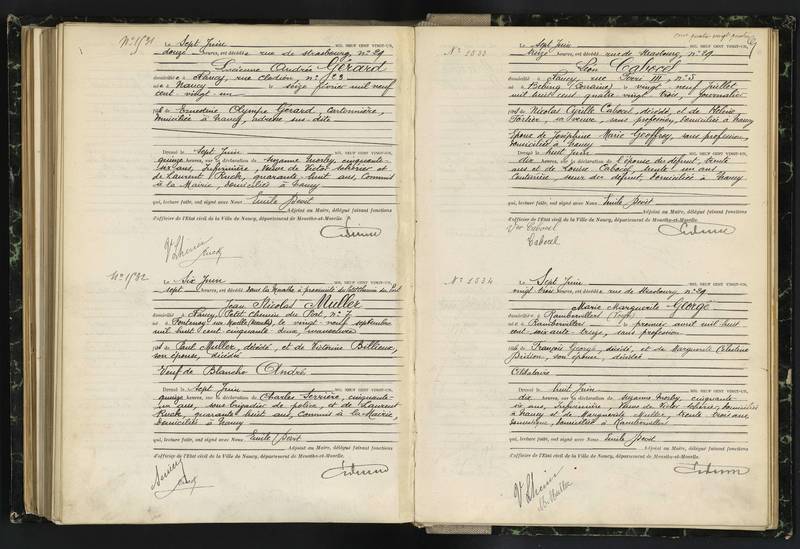 N° 1531
Le Sept Juin MIL NEUF CENT VINGT-UN,
douze heures, est décédé e rue de Strasbourg, n° 29
Lucienne Andrée Gérard
domicilié e à Nancy, rue Clodion, n° 23
né e à Nancy le seize février mil neuf
cent vingt un
fille de Ernestine Olympe Gérard, cartonnière,
domiciliée à Nancy, adresse sus-dite
Dressé le sept Juin MIL NEUF CENT VINGT-UN,
quinze heures, sur la déclaration de Suzanne Morley, cinquante
six ans, infirmière, veuve de Victor
et de Laurent Ruck, quarante huit ans, Commis
à la Mairie, domiciliés à Nancy
qui, lecture faite, ont signé avec Nous Emile
Adjoint au Maire, délégué faisant fonctions
d'officier de l'Etat civil de la Ville de Nancy, département de Meurthe-et-Moselle.
Ruck
N° 1532
Le Six Juin MIL NEUF CENT VINGT-UN,
sept heures, est décédé dans la Meurthe à proximité du Petit Chemin du Port
Jean Nicolas Muller
domicilié à Nancy, Petit Chemin du Port, n° 7
né à Fontenoy sur Moselle le vingt neuf septembre
mil huit cent cinquante deux, manœuvre
fils de Paul Muller, décédé, et de Victorine Billieux,
son épouse, décédée
Veuf de Blanche André
Dressé le sept Juin MIL NEUF CENT VINGT-UN,
quinze heures, sur la déclaration de Charles Serrière, cinquante
un ans, sous brigadier de police, et de Laurent
Ruck, quarante huit ans, Commis à la Mairie,
domiciliés à Nancy
qui, lecture faite, ont signé avec Nous Emile
Adjoint au Maire, délégué faisant fonctions
d'officier de l'Etat civil de la Ville de Nancy, département de Meurthe-et-Moselle.
Ruck
N° 1533
Le Sept Juin MIL NEUF CENT VINGT-UN,
seize heures, est décédé rue de Strasbourg, n° 29
Léon Caborel
domicilié à Nancy, rue n° 8
né à (Lorraine) le vingt neuf Juillet
mil huit cent quatre vingt trois, Journalier
fils de Nicolas Cyrille Caborel, décédé, et de
sa veuve, sans profession, domiciliée à Nancy
Epoux de Joséphine Marie Geoffroy, sans profession,
domiciliée à Nancy
Dressé le huit Juin MIL NEUF CENT VINGT-UN,
dix heures, sur la déclaration de l'épouse du défunt, trente
ans et de Louise Caborel, trente un ans
soeur du défunt, domiciliées à Nancy
qui, lecture faite, ont signé avec Nous Emile
Adjoint au Maire, délégué faisant fonctions
d'officier de l'Etat civil de la Ville de Nancy, département de Meurthe-et-Moselle.
Caborel
Caborel
N° 1534
Le Sept Juin MIL NEUF CENT VINGT-UN,
vingt trois heures, est décédé e rue de Strasbourg, n° 29
Marie Marguerite George
domicilié e à Rambervillers (Vosges)
né e à Rambervillers le premier avril mil huit
cent soixante treize, sans profession
fille de François George, décédé, et de Marguerite Célestine
son épouse, décédée
Célibataire
Dressé le huit Juin MIL NEUF CENT VINGT-UN,
dix heures, sur la déclaration de Suzanne Morley, cinquante
six ans, Infirmière, Veuve de Victor domiciliée
à Nancy et de Marguerite Muller, trente trois ans,
domestique, domiciliée à Rambervillers
qui, lecture faite, ont signé avec Nous Emile
Adjoint au Maire, délégué faisant fonctions
d'officier de l'Etat civil de la Ville de Nancy, département de Meurthe-et-Moselle.
M. Muller